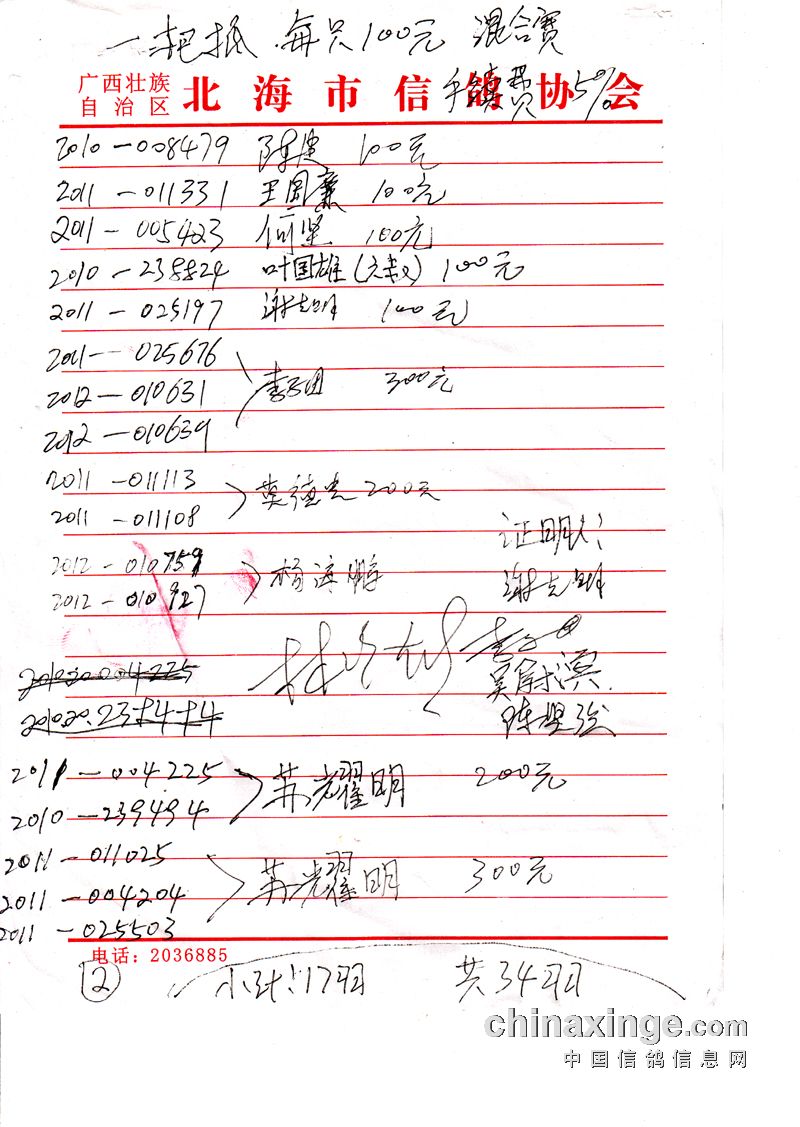 一把抓 每只100元 混合赛
广西壮族
自治区 北海市信鸽协会
手续费5%
2010-008479 陈忠 100元
2011-011331 王国豪 100元
2011-005423 何坚 100元
2010-238824 叶国雄 100元
2011-025197 谢志明 100元
2011-025676
2012-010631 李子团 300元
2012-010639
2011-011113 莫德光 200元
2011-011108
2012-010759 杨海鹏
2012-010927
证明人:
谢志明
陈坚强
2011-004225 苏耀明 200元
2010-239494
2011-011025
2011-004204 苏耀明 300元
2011-025503
电话:2036885
② 小计:17羽 共34羽
chinaxinge.com
中国信鸽信息网